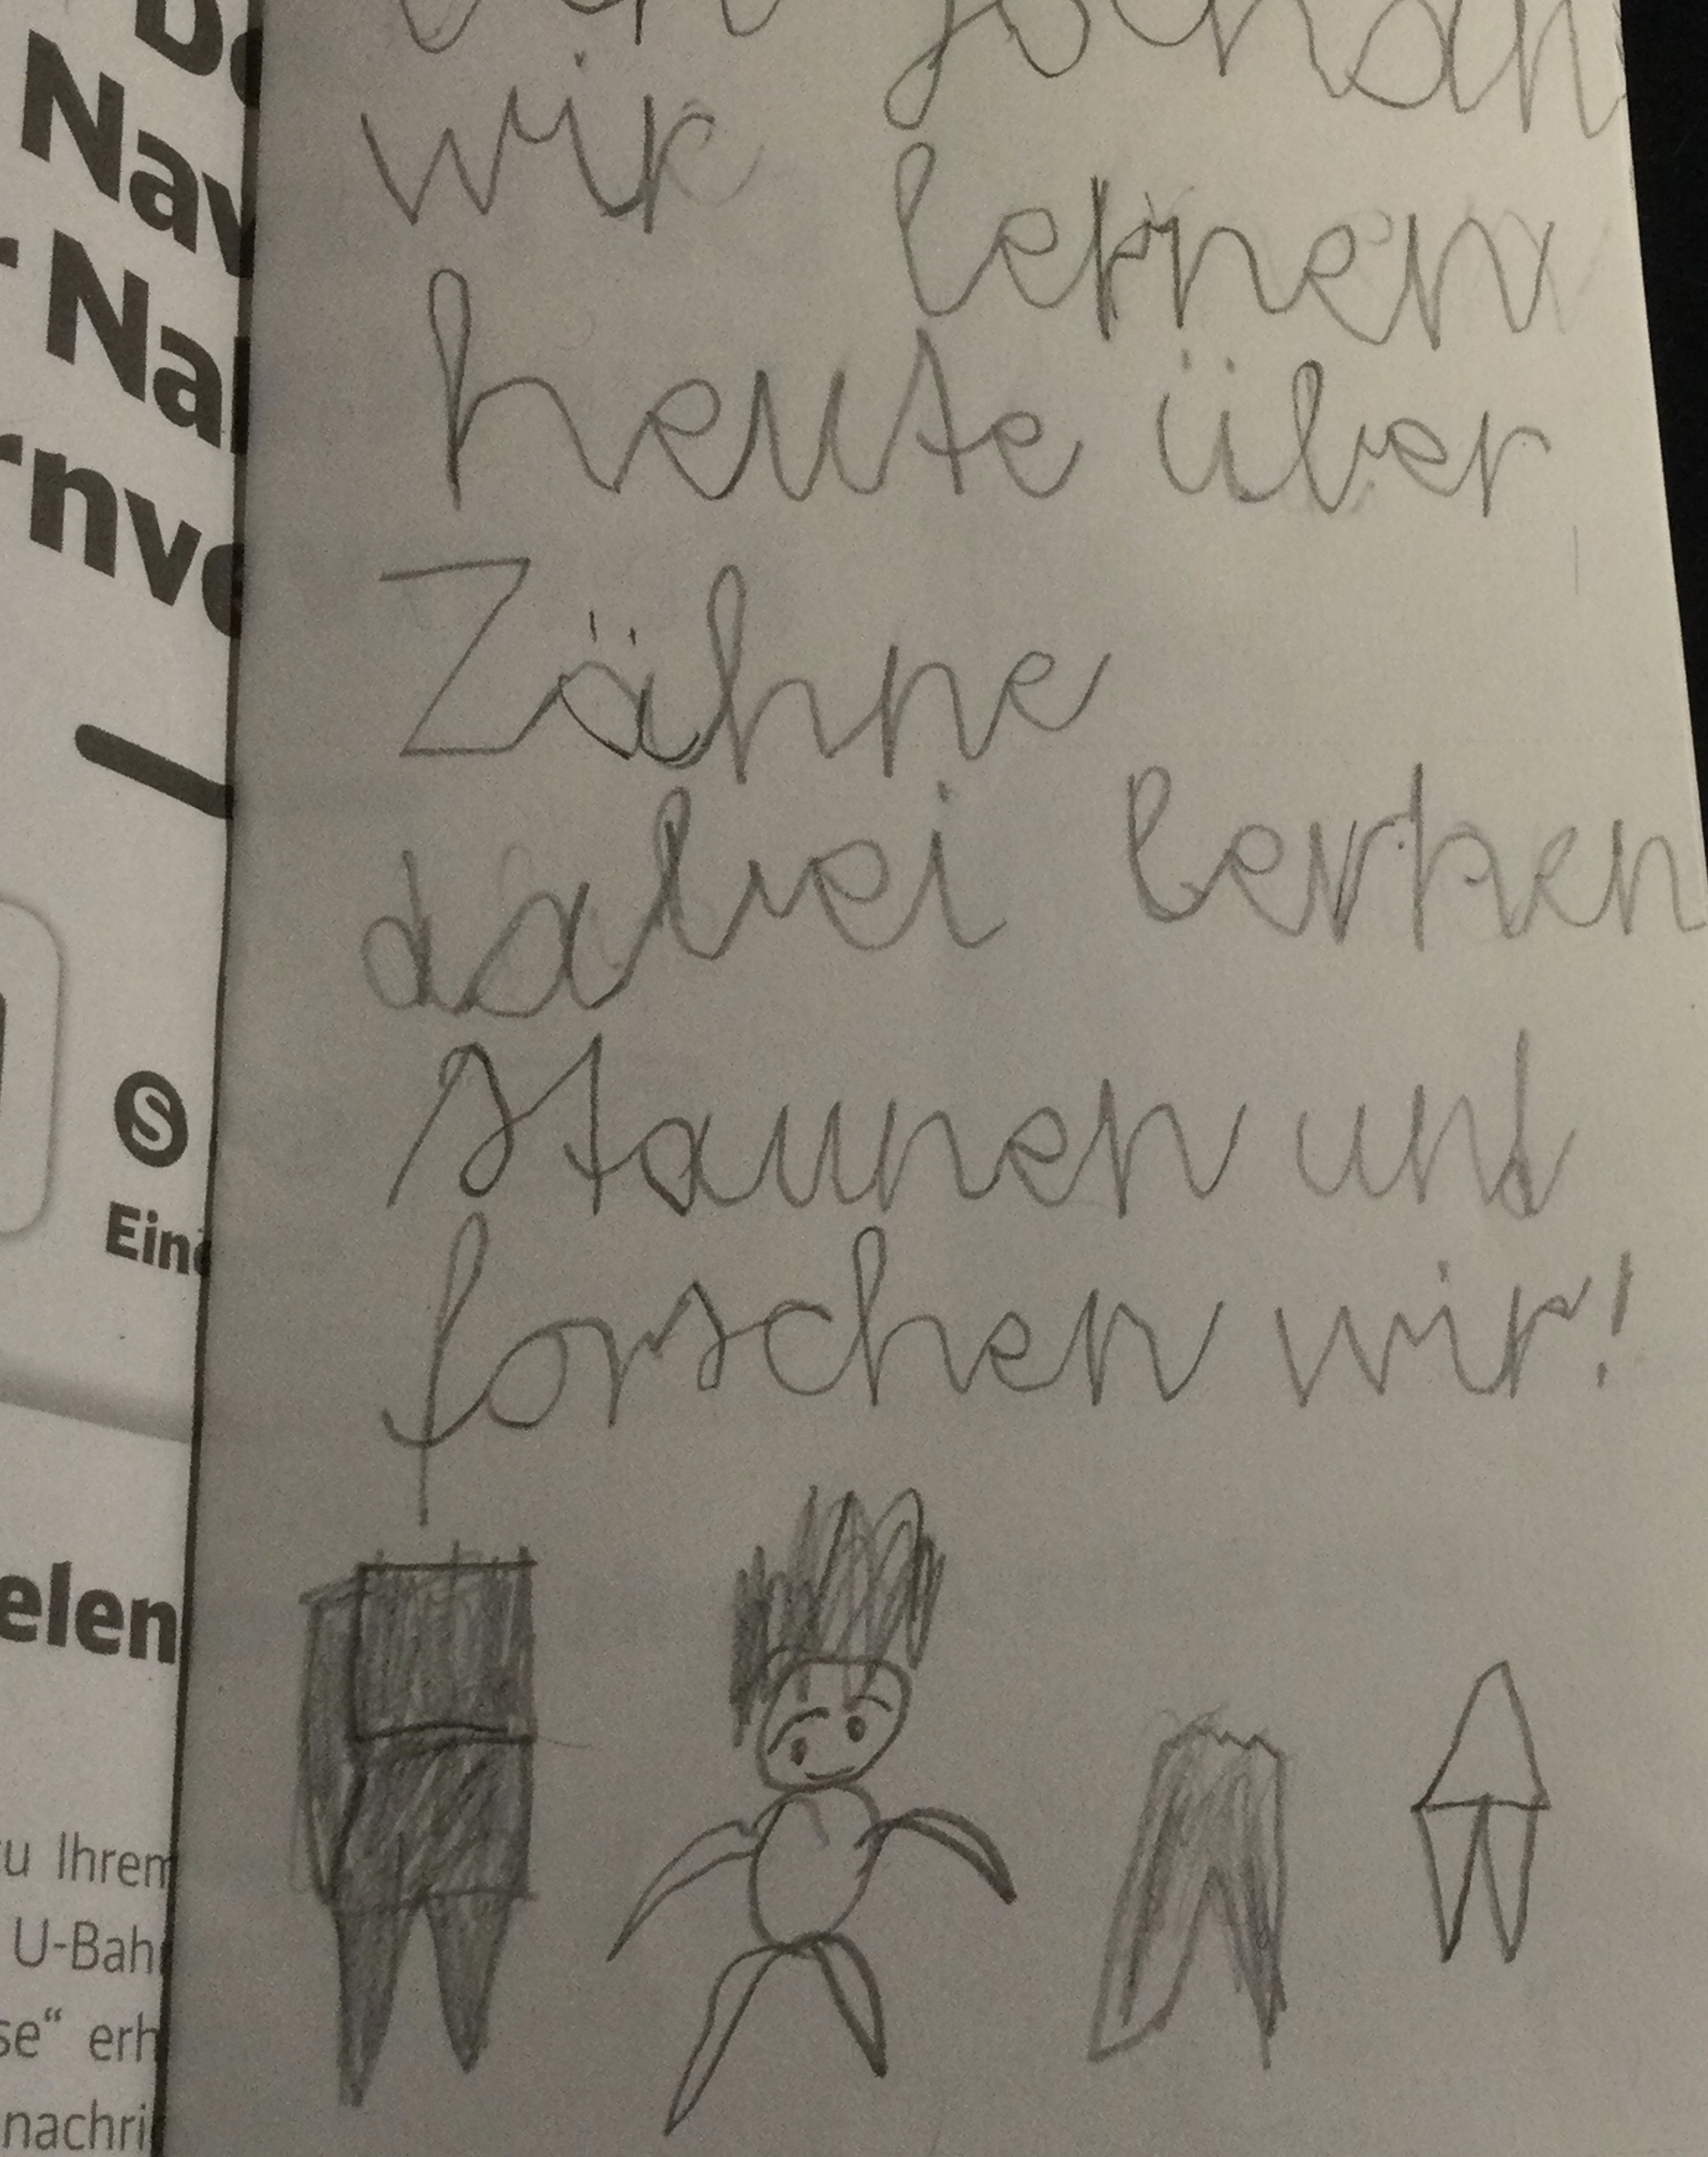 Nav
wir lernen
heute über
Zähne
dabei lernen
staunen und
forschen wir!
S
elen
u Ihrem
U-Bah
se“ erh
nachri